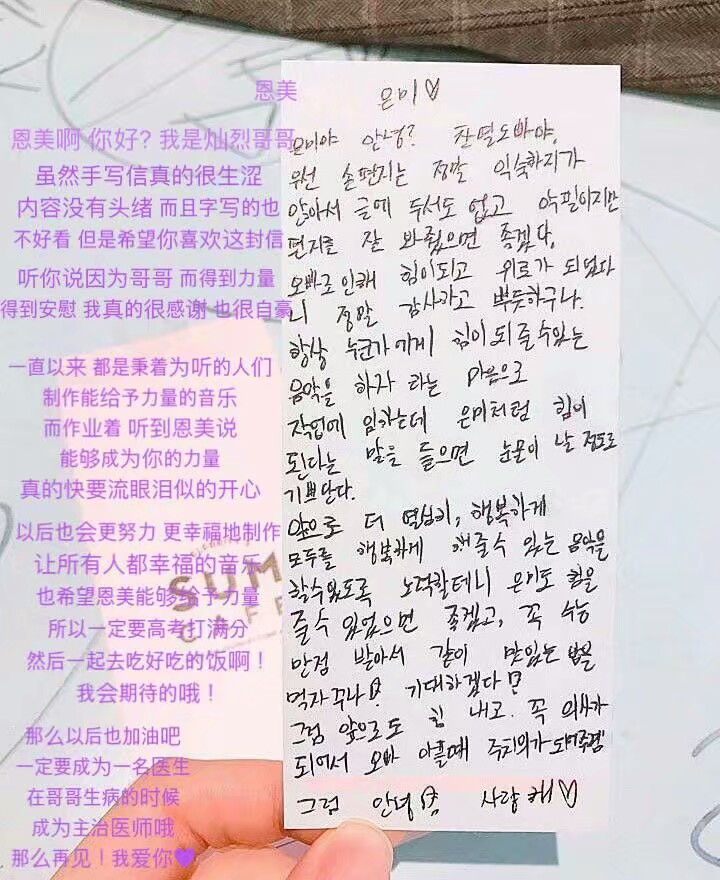 恩美
恩美啊 你好? 我是灿烈哥哥
虽然手写信真的很生涩
内容没有头绪 而且字写的也
不好看 但是希望你喜欢这封信
听你说因为哥哥 而得到力量
得到安慰 我真的很感谢 也很自豪
一直以来 都是秉着为听的人们
制作能给予力量的音乐
而作业着 听到恩美说
能够成为你的力量
真的快要流眼泪似的开心
以后也会更努力 更幸福地制作
让所有人都幸福的音乐
也希望恩美能够给予力量
所以一定要高考打满分
然后一起去吃好吃的饭啊！
我会期待的哦！
那么以后也加油吧
一定要成为一名医生
在哥哥生病的时候
成为主治医师哦
那么再见！我爱你♥
은미♡
은미야 안녕? 찬열오빠야,
우선 손편지는 정말 익숙하지가
않아서 글에 두서도 없고 악필이지만
편지를 잘 봐줬으면 좋겠다,
오빠로 인해 힘이되고 위로가 되었다
니 정말 감사하고 뿌듯하구나.
항상 누군가에게 힘이 되줄수있는
음악을 하자 라는 마음으로
작업에 임하는데 은미처럼 힘이
된다는 말을 들으면 눈물이 날 정도로
기쁘단다.
앞으로 더 열심히, 행복하게
모두를 행복하게 해줄수 있는 음악을
할수있도록 노력할테니 은미도 힘을
줄수 있었으면 좋겠고, 꼭 수능
만점 받아서 같이 맛있는 밥을
먹자꾸나! 기대하겠다!
그럼 앞으로도 힘 내고. 꼭 의사가
되어서 오빠 아플때 주치의가
그럼 안녕 사랑해♡
SUM
CAFE